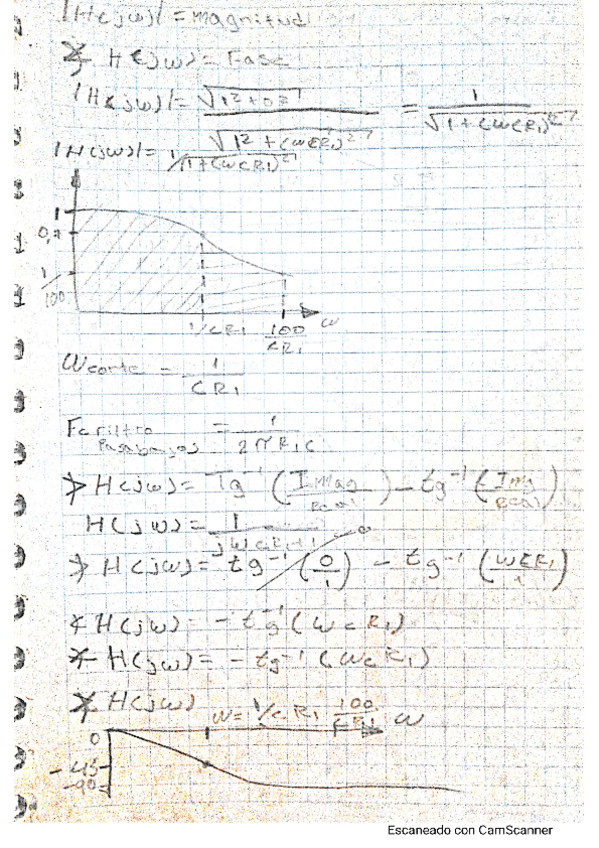 |H(jω)| = magnitud
∡ H(jω) = Fase
|H(jω)| = √(1² + 0²) / √(1² + (ωCR₁)²) = 1 / √(1 + (ωCR₁)²)
|H(jω)| = 1/√(1 + (ωCR₁)²)
1
0,7
1/100
1/CR₁ 100/CR₁ ω
ω corte = 1 / CR₁
Fc filtro Pasabajos = 1 / 2πR₁C
∡ H(jω) = Tg⁻¹ (Imag / Real) - tg⁻¹ (Img / Real)
H(jω) = 1 / jωCR₁+1
∡ H(jω) = tg⁻¹ (0/1) 0 - tg⁻¹ (ωCR₁/1)
∡ H(jω) = - tg⁻¹ (ωCR₁)
∡ H(jω) = - tg⁻¹ (ωCR₁)
∡ H(jω)
ω = 1/CR₁ 100/CR₁ ω
0
-45
-90
Escaneado con CamScanner